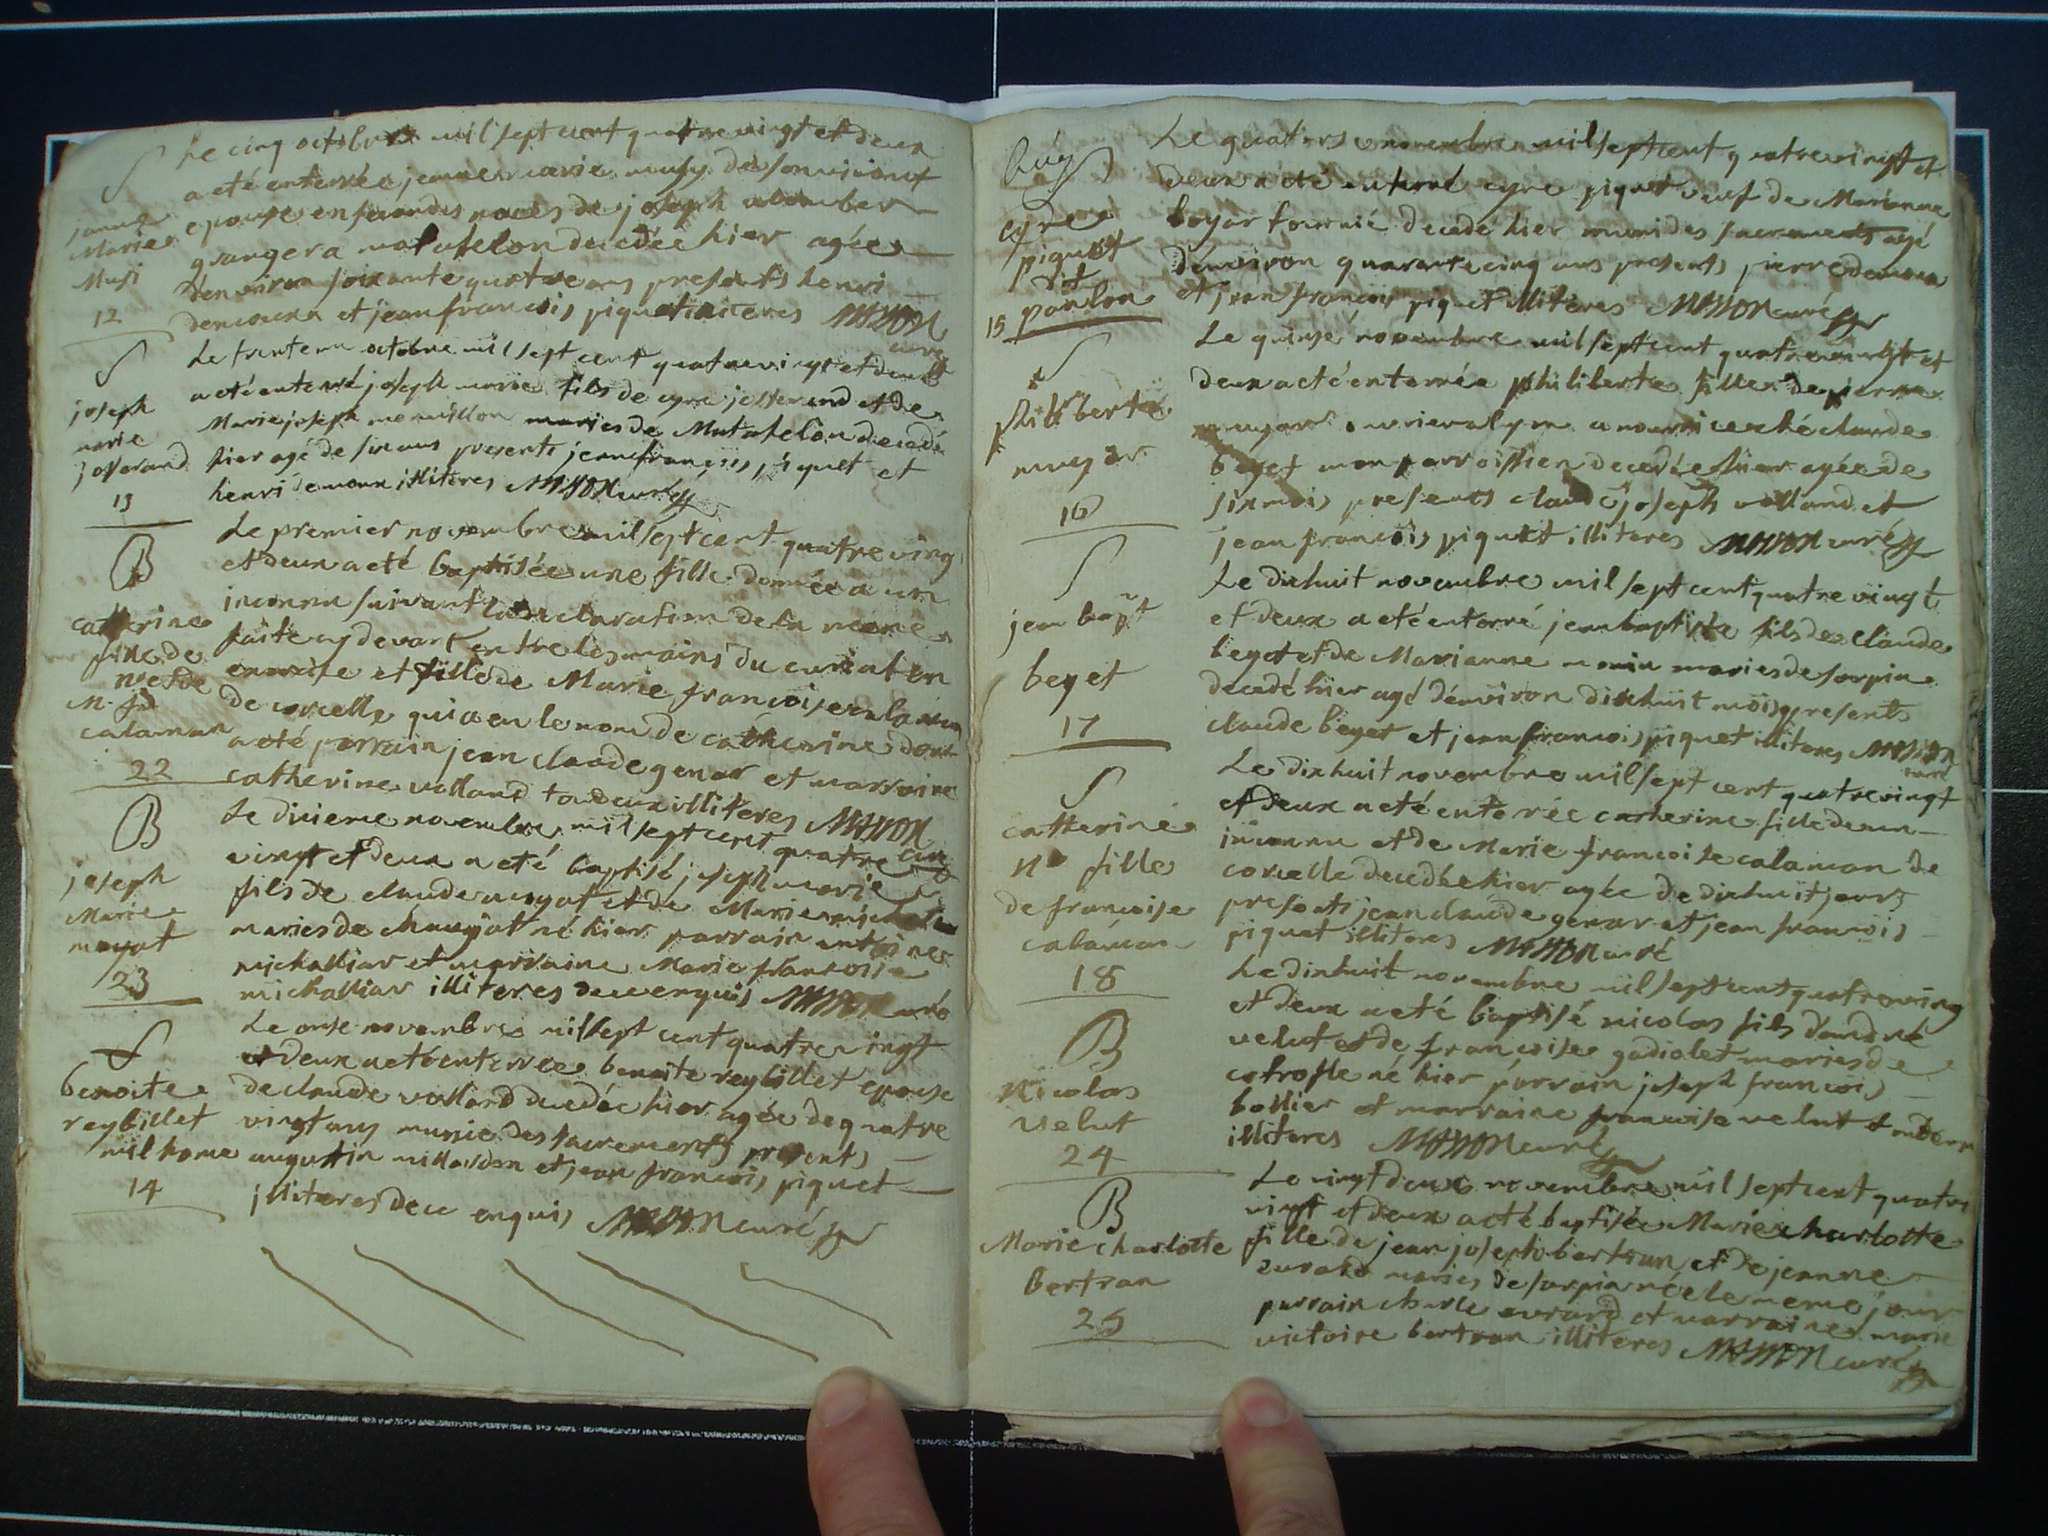 S
janne
Marie
Musi
12
Le cinq octobre mil sept cent quatre vingt et deux
a eté enterrée jeanne marie musy de
epouse en secondes noces de joseph
granger a matafelon decedée hier agée
denviron soixante quatre ans presents henri
demoux et jean francois piquet illiteres MASSON
curé
S
joseph
marie
josserand
13
Le trente un octobre mil sept cent quatre vingt et deux
a eté enterré joseph marie fils de cyre josserand et de
Marie joseph mermillon mariés de Matafelon decedé
hier agé de six ans presents jean francois piquet et
henri demoux illiteres MASSON curé
B
catherine
fille de
M. f
calaman
22
Le premier novembre mil sept cent quatre ving
et deux a eté baptisée une fille donnée a un
inconnu suivant la declaration de la mere
faite cy devant entre les mains du curial en
et fille de Marie francoise calaman
de corcelle qui a eu le nom de catherine dont
a eté parrain jean claude genar et marraine
catherine volland tou deux illiteres MASSON
curé
B
joseph
Marie
moyat
23
Le dixieme novembre mil sept cent quatre
vingt et deux a eté baptisé joseph marie
fils de claude moyat et de Marie
maries de né hier parrain antoine
michalliar et marraine Marie francoise
michalliar illiteres de ce enquis MASSON curé
S
benoite
reybillet
milhome
14
Le onse novembre mil sept cent quatre vingt
et deux a eté enterrée benoite reybillet epouse
de claude volland decedée hier agée de quatre
vingt ans munie des sacrements presents
augustin et jean francois piquet
illiteres de ce enquis MASSON curé
S
cyre
piquet
dit
ponlon
15
Le quatorse novembre mil sept cent quatre vingt et
deux a eté enterré cyre piquet veuf de Marianne
decedé hier muni des sacrements agé
d'environ quarante cinq ans presents pierre demoux
et jean francois piquet illiteres MASSON curé
S
philiberte
muyar
16
Le quinse novembre mil sept cent quatre vingt et
deux a eté enterrée philiberte fille de pierre
muyar a nourrice ché claude
beyet mon parroissien decedée hier agée de
six mois presents claude joseph volland et
jean francois piquet illiteres MASSON curé
S
jean bapt
beyet
17
Le dixhuit novembre mil sept cent quatre vingt
et deux a eté enterré jean baptiste fils de claude
beyet et de Marianne monin maries de sorpia
decedé hier agé d'environ dixhuit mois presents
claude beyet et jean francois piquet illiteres MASSON
curé
S
catherine
fille
de francoise
calaman
18
Le dixhuit novembre mil sept cent quatre vingt
et deux a eté enterrée catherine fille de un
inconnu et de Marie francoise calaman de
corcelle decedée hier agée de dixhuit jours
presents jean claude genar et jean francois
piquet illiteres MASSON curé
B
Nicolas
velut
24
Le dixhuit novembre mil sept cent quatre ving
et deux a eté baptisé nicolas fils d'andré
velut et de francoise gadiolet maries de
né hier parrain joseph francois
bollier et marraine francoise velut
illiteres MASSON curé
B
Marie charlotte
bertran
25
Le vingt deux novembre mil sept cent quatre
vingt et deux a eté baptisée Marie charlotte
fille de jean joseph bertran et de jeanne
maries de sorpia née le meme jour
parrain charle evrard et marraine marie
victoire bertran illiteres MASSON curé